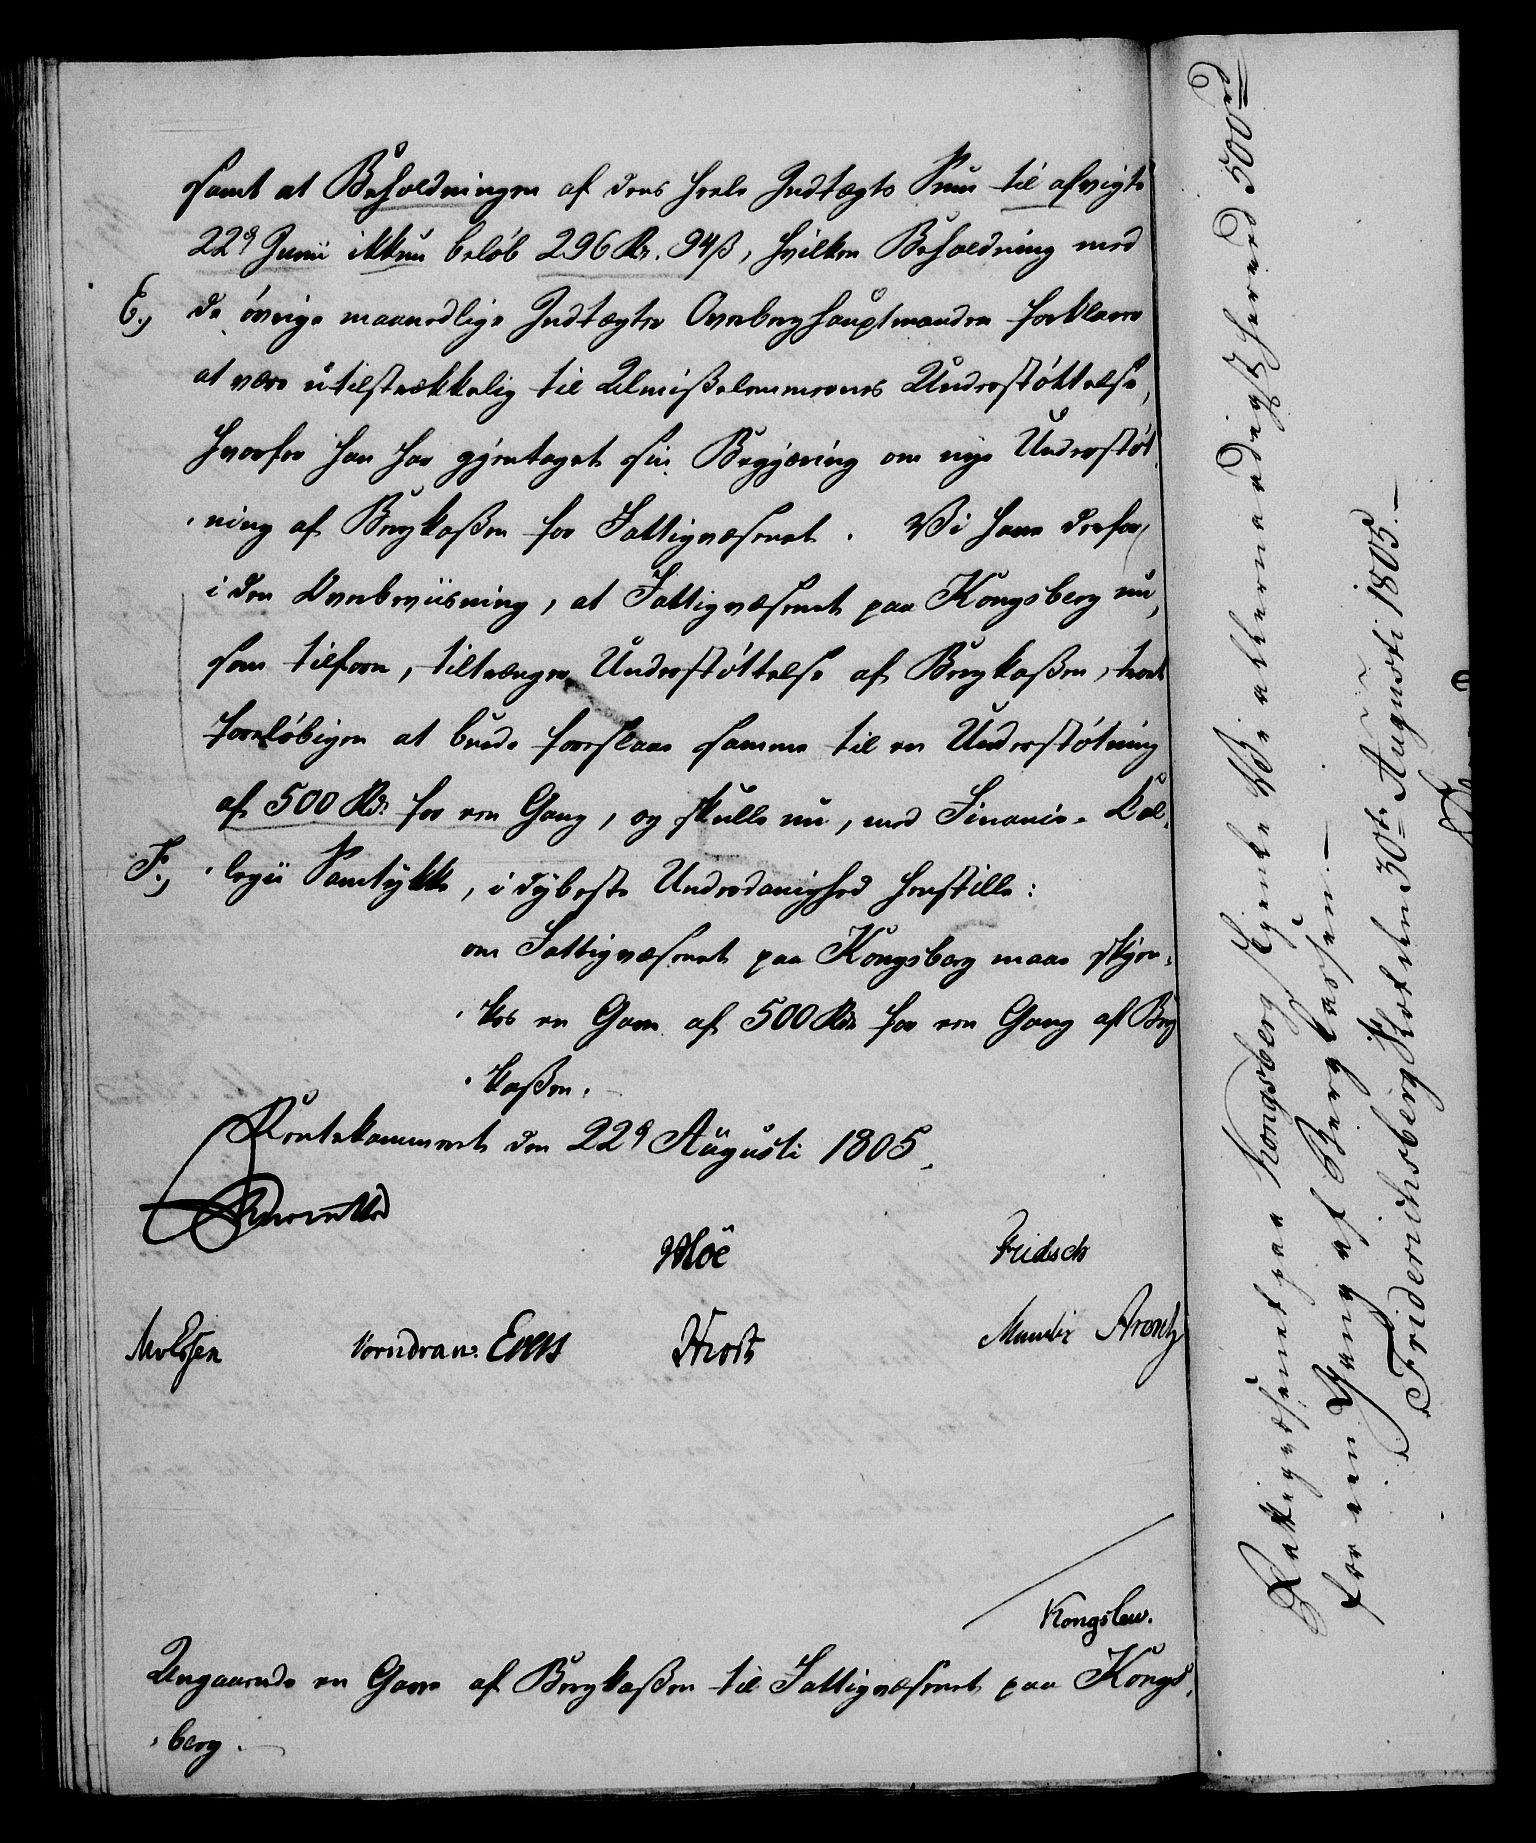 samt at Beholdningen af dens heele Indtægts Sum til afvigte
22de Junii ikkun beløb 296 Rd. 94ß, hvilken Beholdning med
E.) de øvrige maanedlige Indtægter Overberghauptmanden forklarer
at være utilstrækkelig til Almißelemmernes Understøttelse,
hvorfor han har gjentaget sin Begjæring om nye Understøt-
ning af Bergkaßen for Fattigvæsenet. Vi have derfor,
i den Overbeviisning, at Fattigvæsenet paa Kongsberg nu,
som tilforn, tiltrænger Understøttelse af Bergkaßen, troet
foreløbigen at burde foreslaae samme til en Understøtning
af 500 Rd. for een Gang, og skulle nu, med Finants-Col-
F.) legii Samtykke, i dybeste Underdanighed henstille:
om Fattigvæsenet paa Kongsberg maae skjen-
kes en Gave af 500 Rd. for een Gang af Berg
kaßen.
Rentekammeret den 22de Augusti 1805.
Reventlow
Wloë Fridsch
Vorndran. Evers Hiort Munthe Arentz
Kongslew.
Angaaende en Gave af Bergkaßen til Fattigvæsenet paa Kongs-
berg.
Fattigvæsenet paa Kongsberg skjenke Vi allernaadigst herved 500rd
for een Gang af Bergkassen.
Friderichsberg Slot den 30te Augusti 1805.